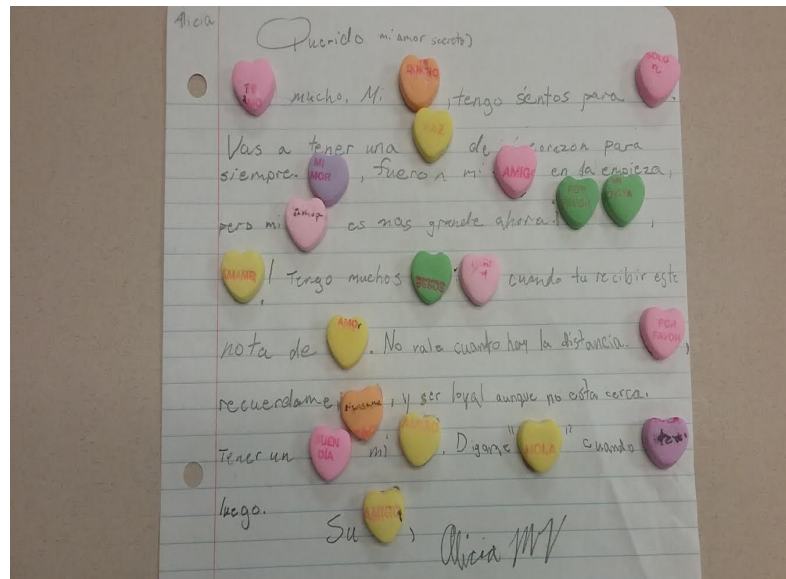 Alicia
Querido mi amor secreto)
TE AMO mucho. Mi, tengo sentos para SOLO
Vas a tener una de corazon para
siempre. MI AMOR, fueron mi AMIGO en la empieza,
pero mi amor es mas grande ahora. POR FAVOR,
AMAME! Tengo muchos BESOS cuando tu recibir este
nota de AMOR. No vale cuanto hay la distancia. POR FAVOR,
recuerdame, y ser loyal aunque no esta cerca.
Tener un BUEN DÍA mi. Digame "HOLA" cuando
luego.
Su AMIGO,
Alicia